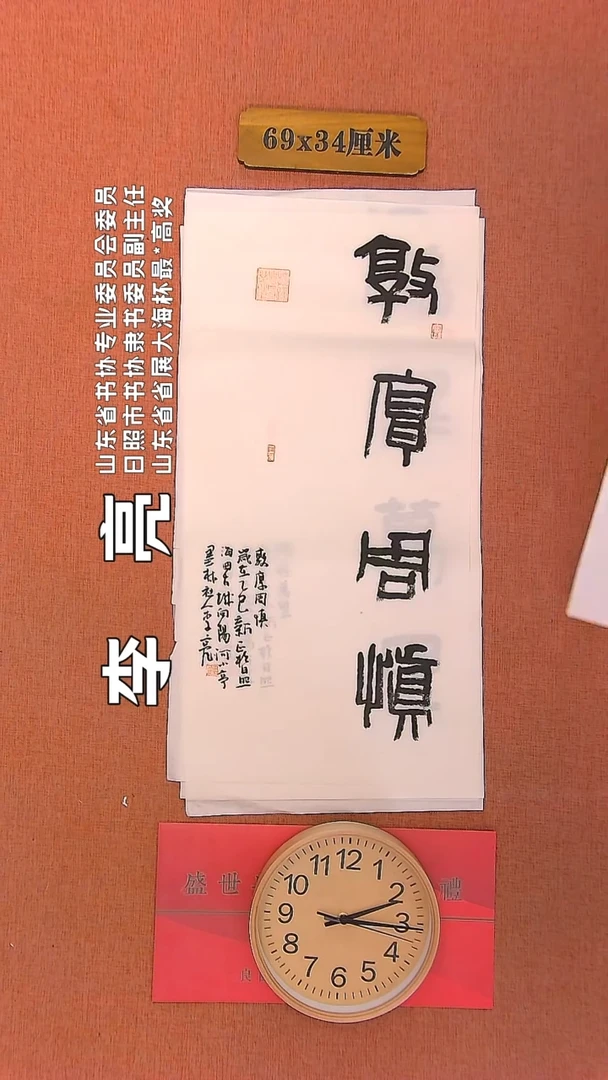 69x34厘米
山东省书协专业委员会委员
日照市书协隶书委员副主任
山东省省展大海杯最*高奖
李亮
敦
厚
周
慎
敦厚周慎
岁在乙巳新正于日照
海曲古城向阳河小亭
墨林社人李亮
盛世
禮
良
12
1
2
3
4
5
6
7
8
9
10
11